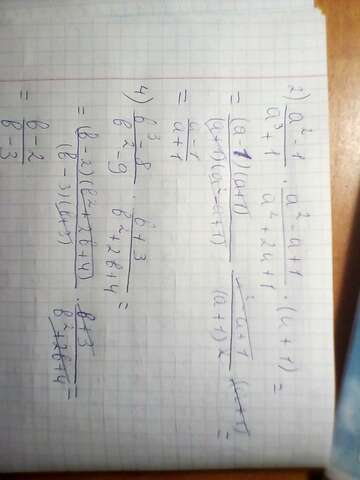 2) (a² - 1)/(a³ + 1) · (a² - a + 1)/(a² + 2a + 1) · (a + 1) =
= ((a - 1)(a + 1))/((a + 1)(a² - a + 1)) · (a² - a + 1)/((a + 1)²) · (a + 1) =
= (a - 1)/(a + 1)
4) (b³ - 8)/(b² - 9) · (b + 3)/(b² + 2b + 4) =
= ((b - 2)(b² + 2b + 4))/((b - 3)(b + 3)) · (b + 3)/(b² + 2b + 4) =
= (b - 2)/(b - 3)